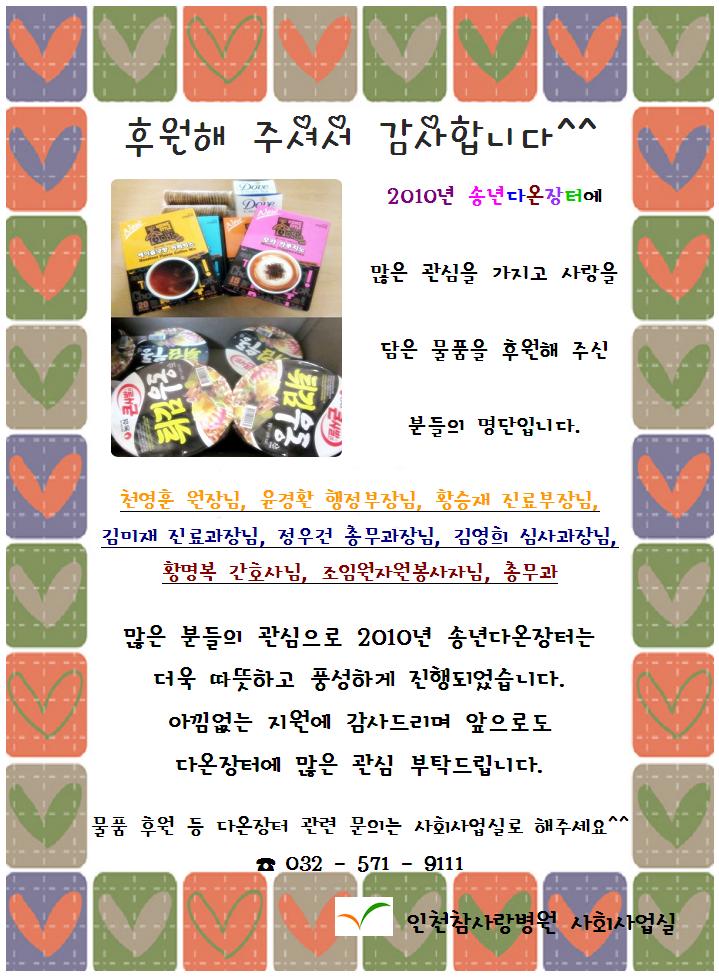 후원해 주셔서 감사합니다^^
2010년 송년다온장터에
많은 관심을 가지고 사랑을
담은 물품을 후원해 주신
분들의 명단입니다.
Dove
Dove
튀김우동
큰사발
튀김우동
큰사발
천영훈 원장님, 윤경환 행정부장님, 황승재 진료부장님,
김미재 진료과장님, 정우건 총무과장님, 김영희 심사과장님,
황명복 간호사님, 조임원자원봉사자님, 총무과
많은 분들의 관심으로 2010년 송년다온장터는
더욱 따뜻하고 풍성하게 진행되었습니다.
아낌없는 지원에 감사드리며 앞으로도
다온장터에 많은 관심 부탁드립니다.
물품 후원 등 다온장터 관련 문의는 사회사업실로 해주세요^^
☎ 032 - 571 - 9111
인천참사랑병원 사회사업실